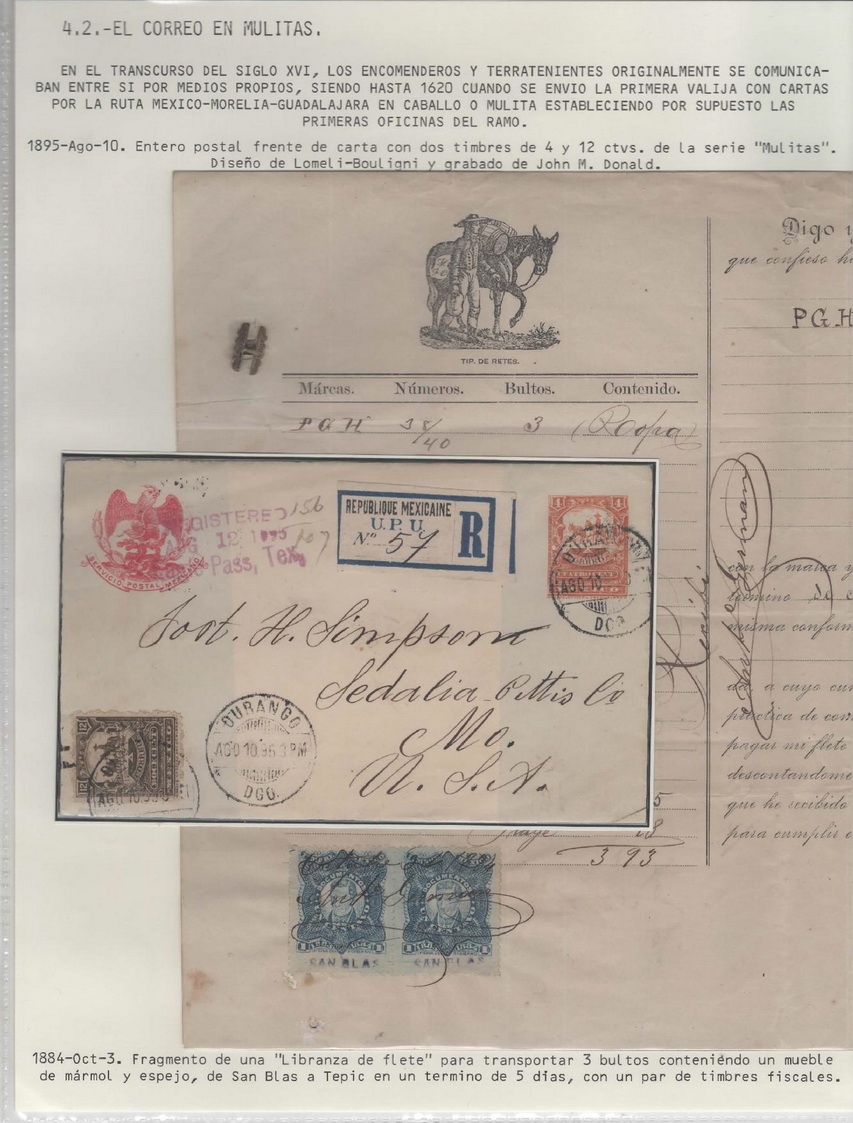 4.2.-EL CORREO EN MULITAS.
EN EL TRANSCURSO DEL SIGLO XVI, LOS ENCOMENDEROS Y TERRATENIENTES ORIGINALMENTE SE COMUNICA-
BAN ENTRE SI POR MEDIOS PROPIOS, SIENDO HASTA 1620 CUANDO SE ENVIO LA PRIMERA VALIJA CON CARTAS
POR LA RUTA MEXICO-MORELIA-GUADALAJARA EN CABALLO O MULITA ESTABLECIENDO POR SUPUESTO LAS
PRIMERAS OFICINAS DEL RAMO.
1895-Ago-10. Entero postal frente de carta con dos timbres de 4 y 12 ctvs. de la serie "Mulitas".
Diseño de Lomeli-Bouligni y grabado de John M. Donald.
Digo y
que confieso ha
PGH
TIP. DE RETES.
Márcas. Números. Bultos. Contenido.
PGH 38/40 3 (Ropa)
SERVICIO POSTAL MEXICANO
GISTERED
12 1895
Pass, Tex.
156
107
REPUBLIQUE MEXICAINE
U.P.U.
Nº 57 R
4 4
DURANGO
AGO 10
DGO.
Post. H. Simpson
Sedalia Pettis Co
Mo.
U.S.A.
12 12
AGO 10
DURANGO
AGO 10 95 3 PM
DGO.
Recibí
con la marca y
término de
misma conform
da, a cuyo cum
práctica de com
pagar mi flete
descontandome
que he recibido
para cumplir
5
18
3 93
DOCUMENTOS DOCUMENTOS
SAN BLAS SAN BLAS
1884-Oct-3. Fragmento de una "Libranza de flete" para transportar 3 bultos conteniéndo un mueble
de mármol y espejo, de San Blas a Tepic en un termino de 5 dias, con un par de timbres fiscales.